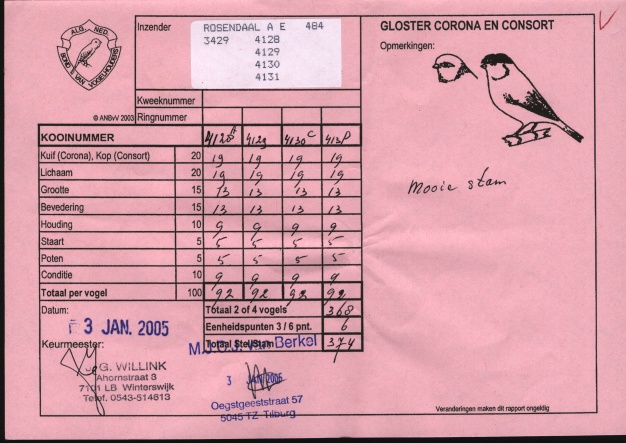 ALG. NED.
BOND v. VAN VOGELHOUDERS
Inzender
ROSENDAAL A E 484
3429 4128
4129
4130
4131
GLOSTER CORONA EN CONSORT
Opmerkingen:
Kweeknummer
© ANBvV 2003 Ringnummer
KOOINUMMER 4128A 4129 4130C 413D
Kuif (Corona), Kop (Consort) 20 19 19 19 19
Lichaam 20 19 19 19 19
Grootte 15 13 13 13 13
Bevedering 15 13 13 13 13
Houding 10 9 9 9 9
Staart 5 5 5 5 5
Poten 5 5 5 5 5
Conditie 10 9 9 9 9
Totaal per vogel 100 92 92 92 92
Mooie stam
Datum:
3 JAN. 2005
Totaal 2 of 4 vogels 368
Eenheidspunten 3 / 6 pnt. 6
Totaal Stel/Stam 374
Keurmeester:
Berkel
G. WILLINK
Ahornstraat 3
7101 LB Winterswijk
Telef. 0543-514613
3 JAN 2005
Oegstgeeststraat 57
5045 TZ Tilburg
Veranderingen maken dit rapport ongeldig